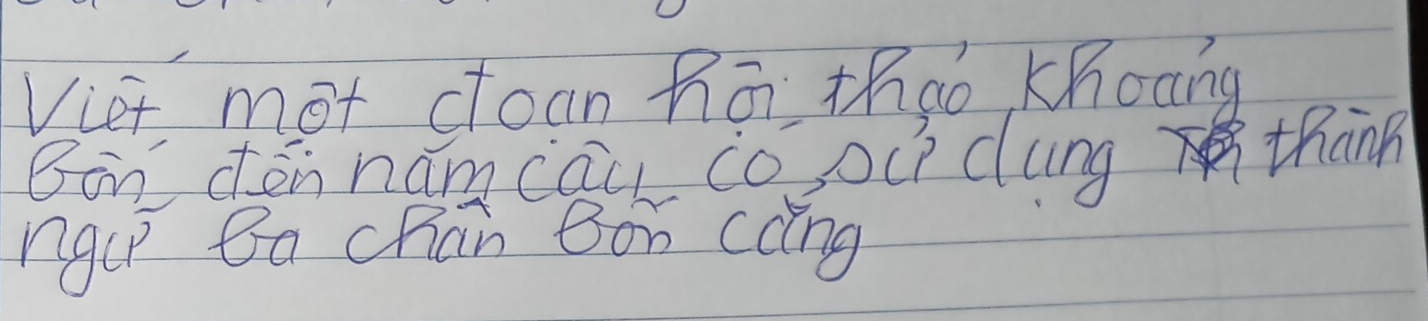 Viết một đoạn hội thoại khoảng
bốn đến năm câu có sử dụng thành
ngữ ba chân bốn cẳng